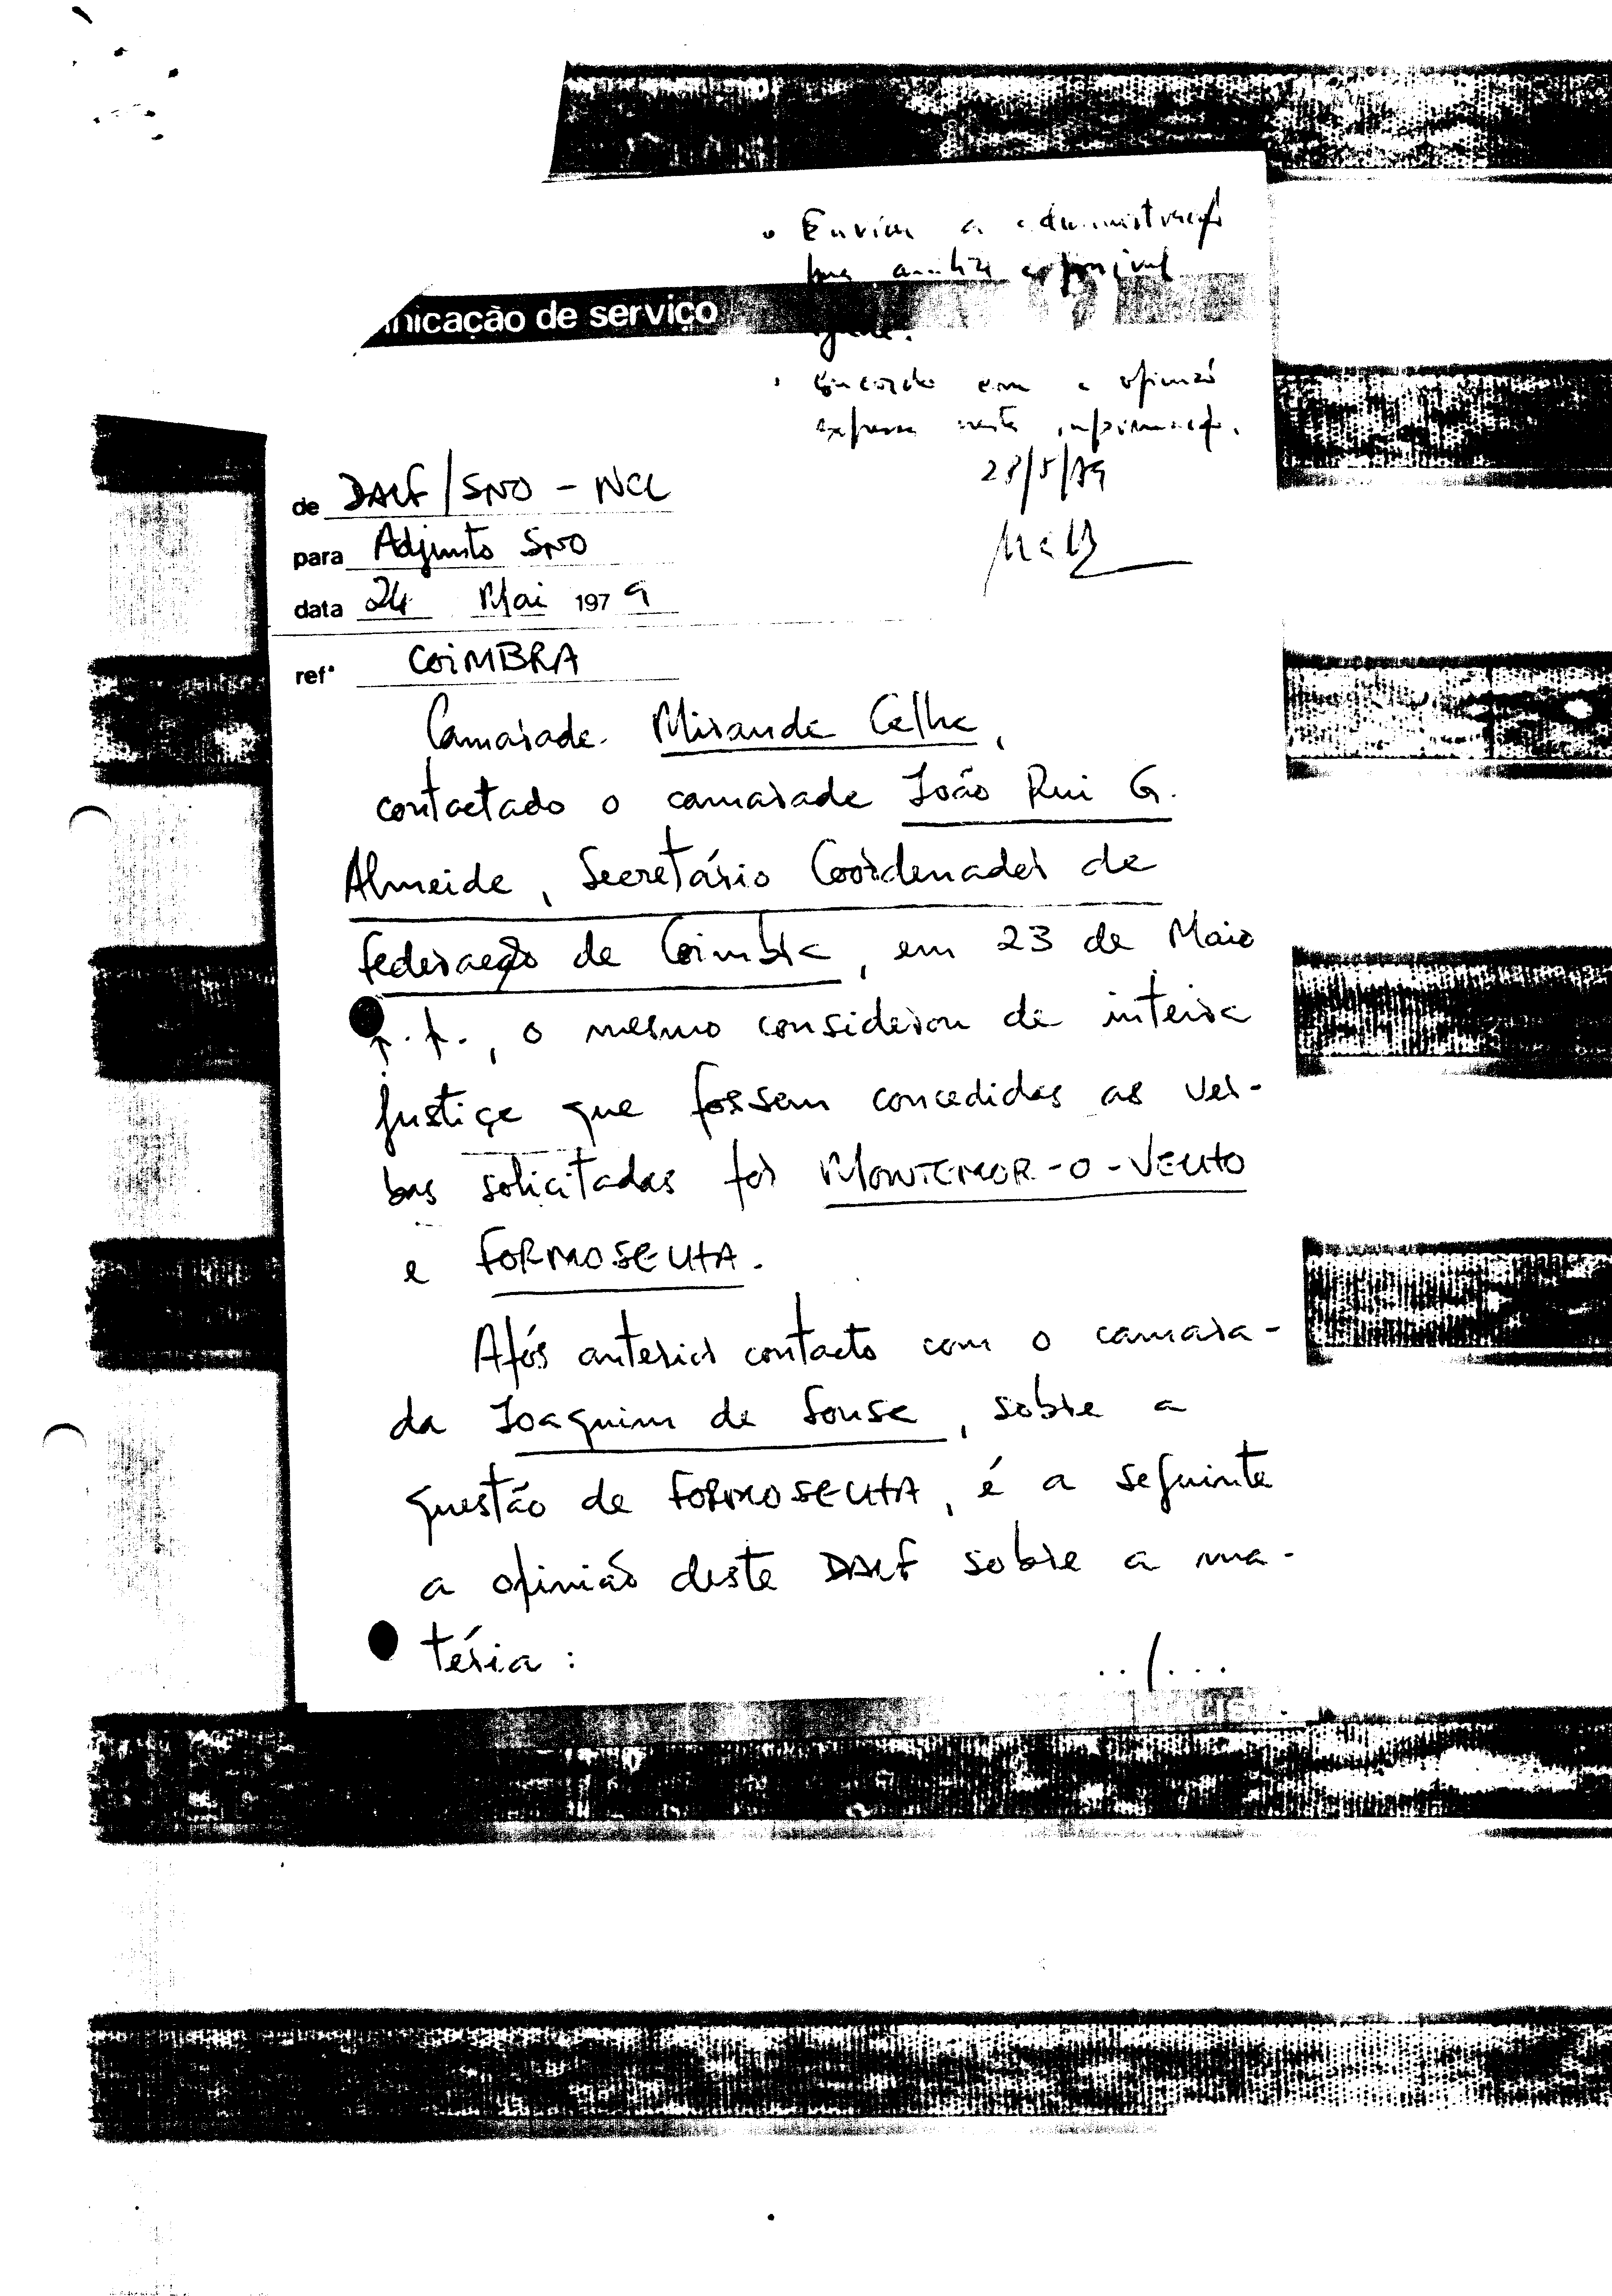 • Enviar à administração
para análise e possível
nicação de serviço
• Concordo com a opinião
expressa nesta informação.
28/5/79
de DALF/SNO - NCL
para Adjunto SNO
data 24 Mai 1979
refª COIMBRA
Camarada Miranda Calha,
contactado o camarada João Rui G.
Almeida, Secretário Coordenador da
Federação de Coimbra, em 23 de Maio
p.p., o mesmo considerou de inteira
justiça que fossem concedidas as ver-
bas solicitadas por MONTEMOR-O-VELHO
e FORMOSELHA.
Após anterior contacto com o camara-
da Joaquim de Sousa, sobre a
questão de FORMOSELHA, é a seguinte
a opinião deste DALF sobre a ma-
téria :
../...